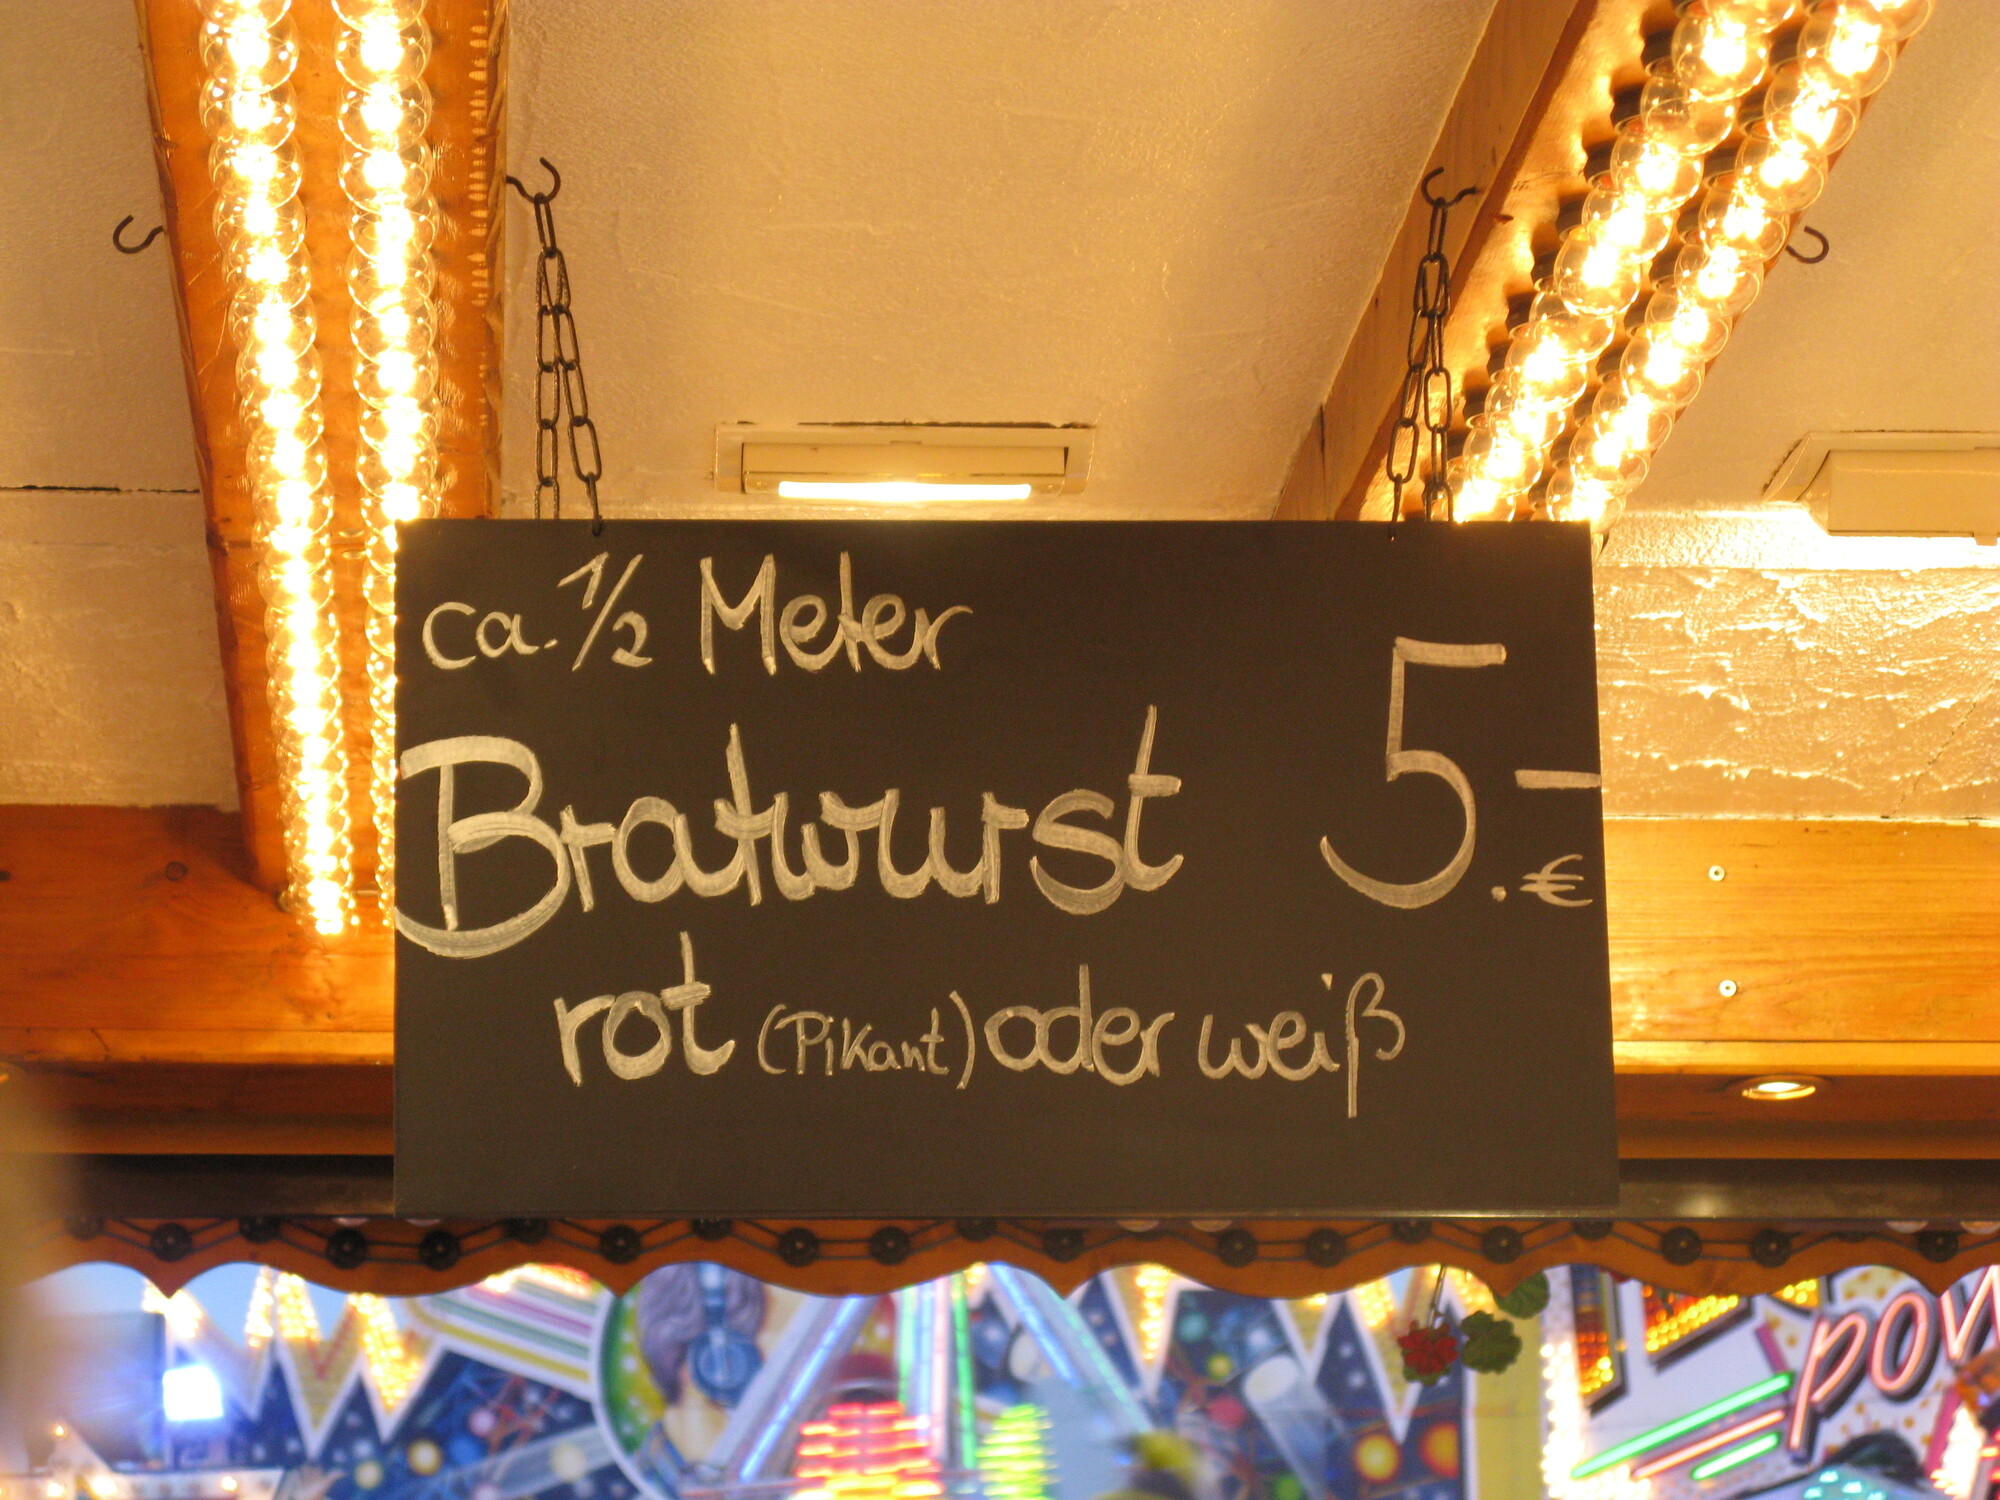 ca. 1/2 Meter
Bratwurst 5.-€
rot (Pikant) oder weiß